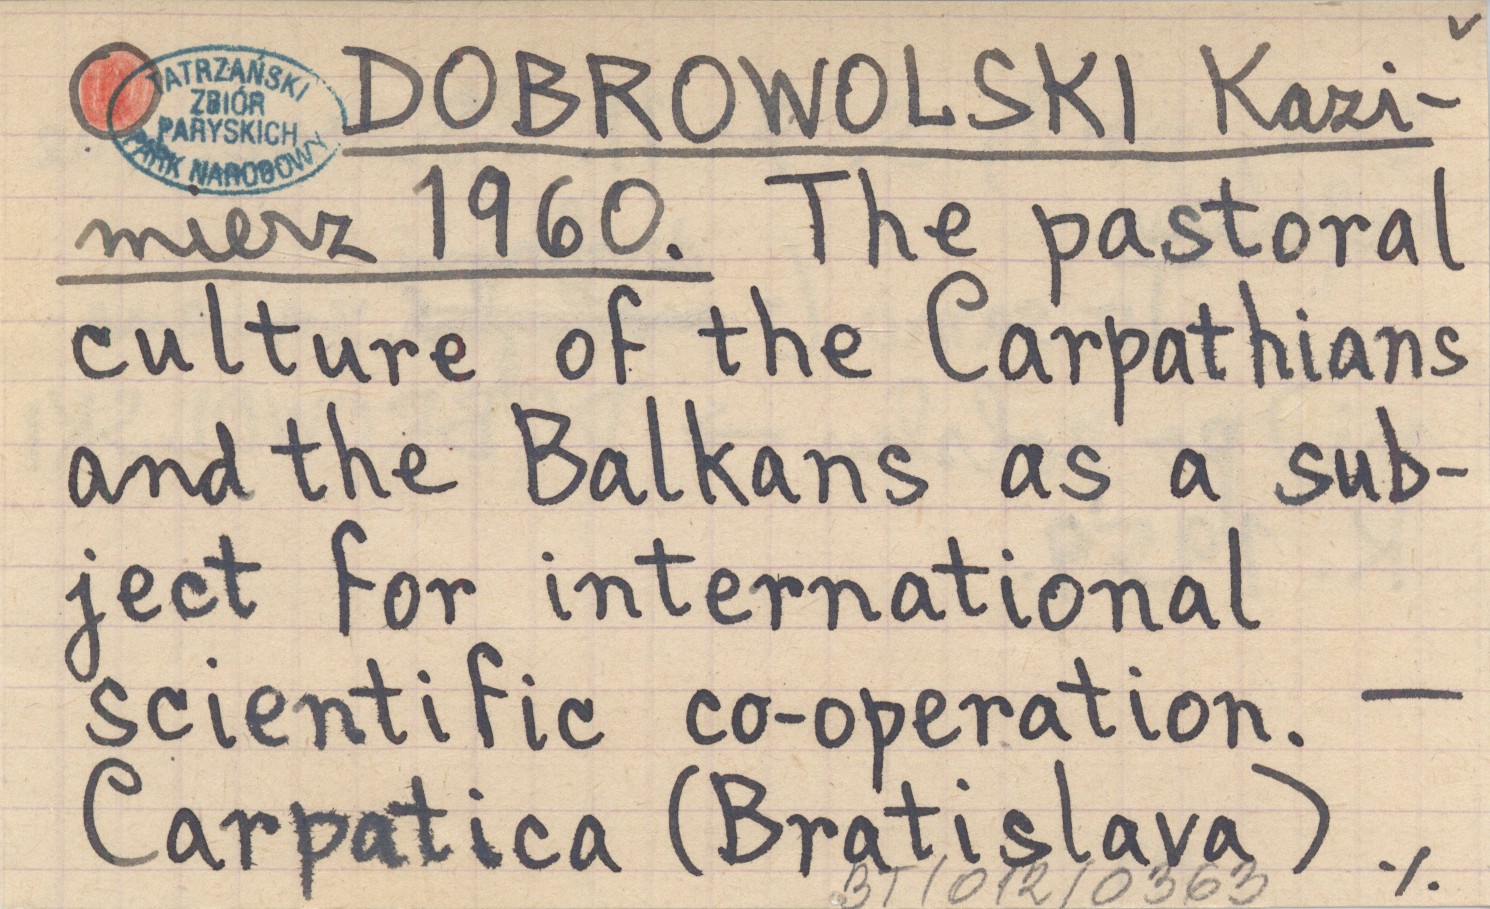 TATRZAŃSKI
ZBIÓR
PARYSKICH
PARK NARODOWY
DOBROWOLSKI Kazi-
mierz 1960. The pastoral
culture of the Carpathians
and the Balkans as a sub-
ject for international
scientific co-operation. —
Carpatica (Bratislava) ./.
BT/012/0363